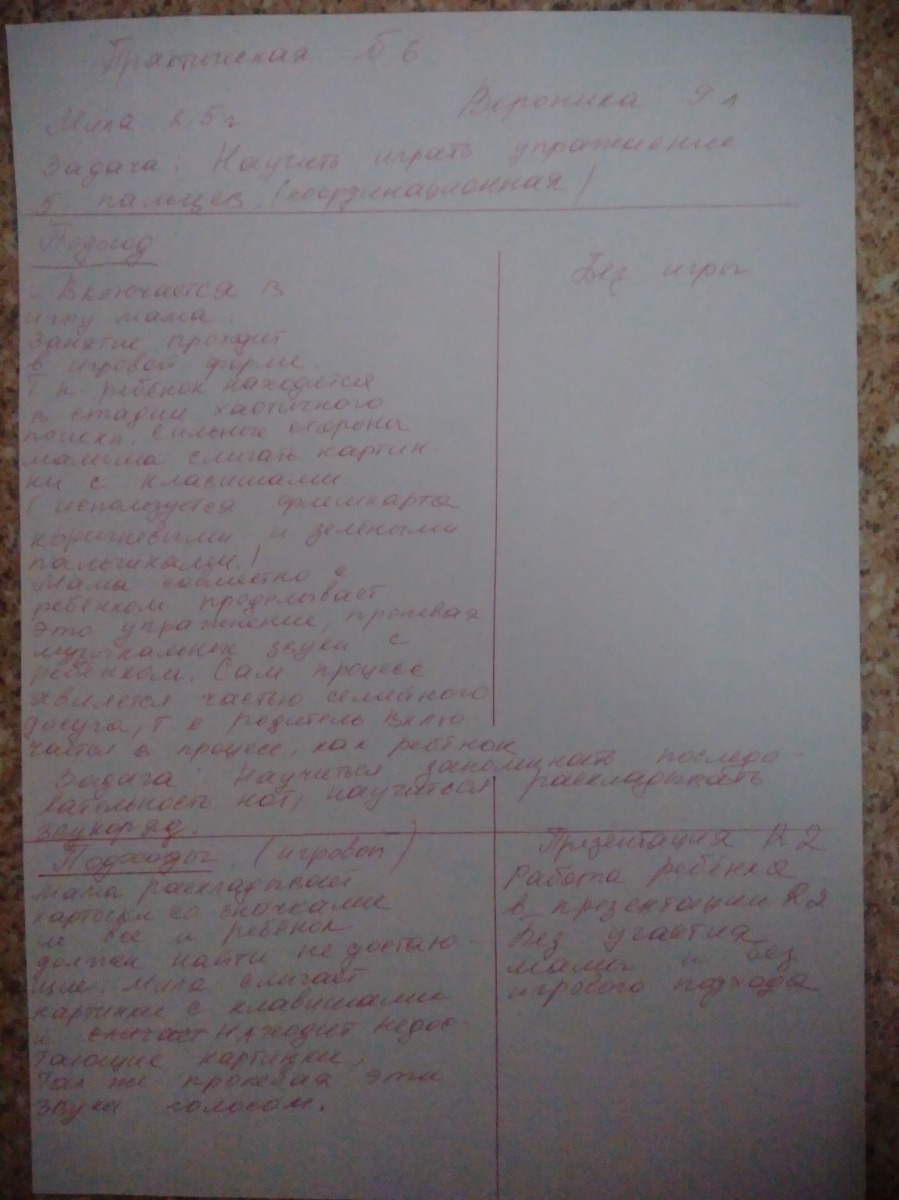 Практическая № 6
Мила 2.5 г
Вероника 9 л
Задача: Научить играть упражнение
5 пальцев. (координационная)
Подход
Без игры
- Включается в
игру мама.
Занятие проходит
в игровой форме.
Т к ребёнок находится
в стадии хаотичного
поиска. Сильные стороны
малыша сличать картин-
ки с клавишами.
(используется флешкарта
коричневыми и зелёными
пальчиками.)
Мама совместно с
ребёнком проделывает
это упражнение, пропевая
музыкальные звуки с
ребёнком. Сам процесс
является частью семейного
досуга, т е родитель вклю-
чается в процесс, как ребёнок
Задача: Научиться запоминать последо-
вательность нот, научиться раскладывать
звукоряд.
Подходы (игровой)
мама раскладывает
карточки со значками
не все и ребёнок
должен найти не достаю-
щие. Мила сличает
картинки с клавишами
и находит недос-
тающие картинки,
так же пропевая эти
звуки голосом.
Презентация R2
Работа ребёнка
в презентации R2
Без участия
мамы и без
игрового подхода